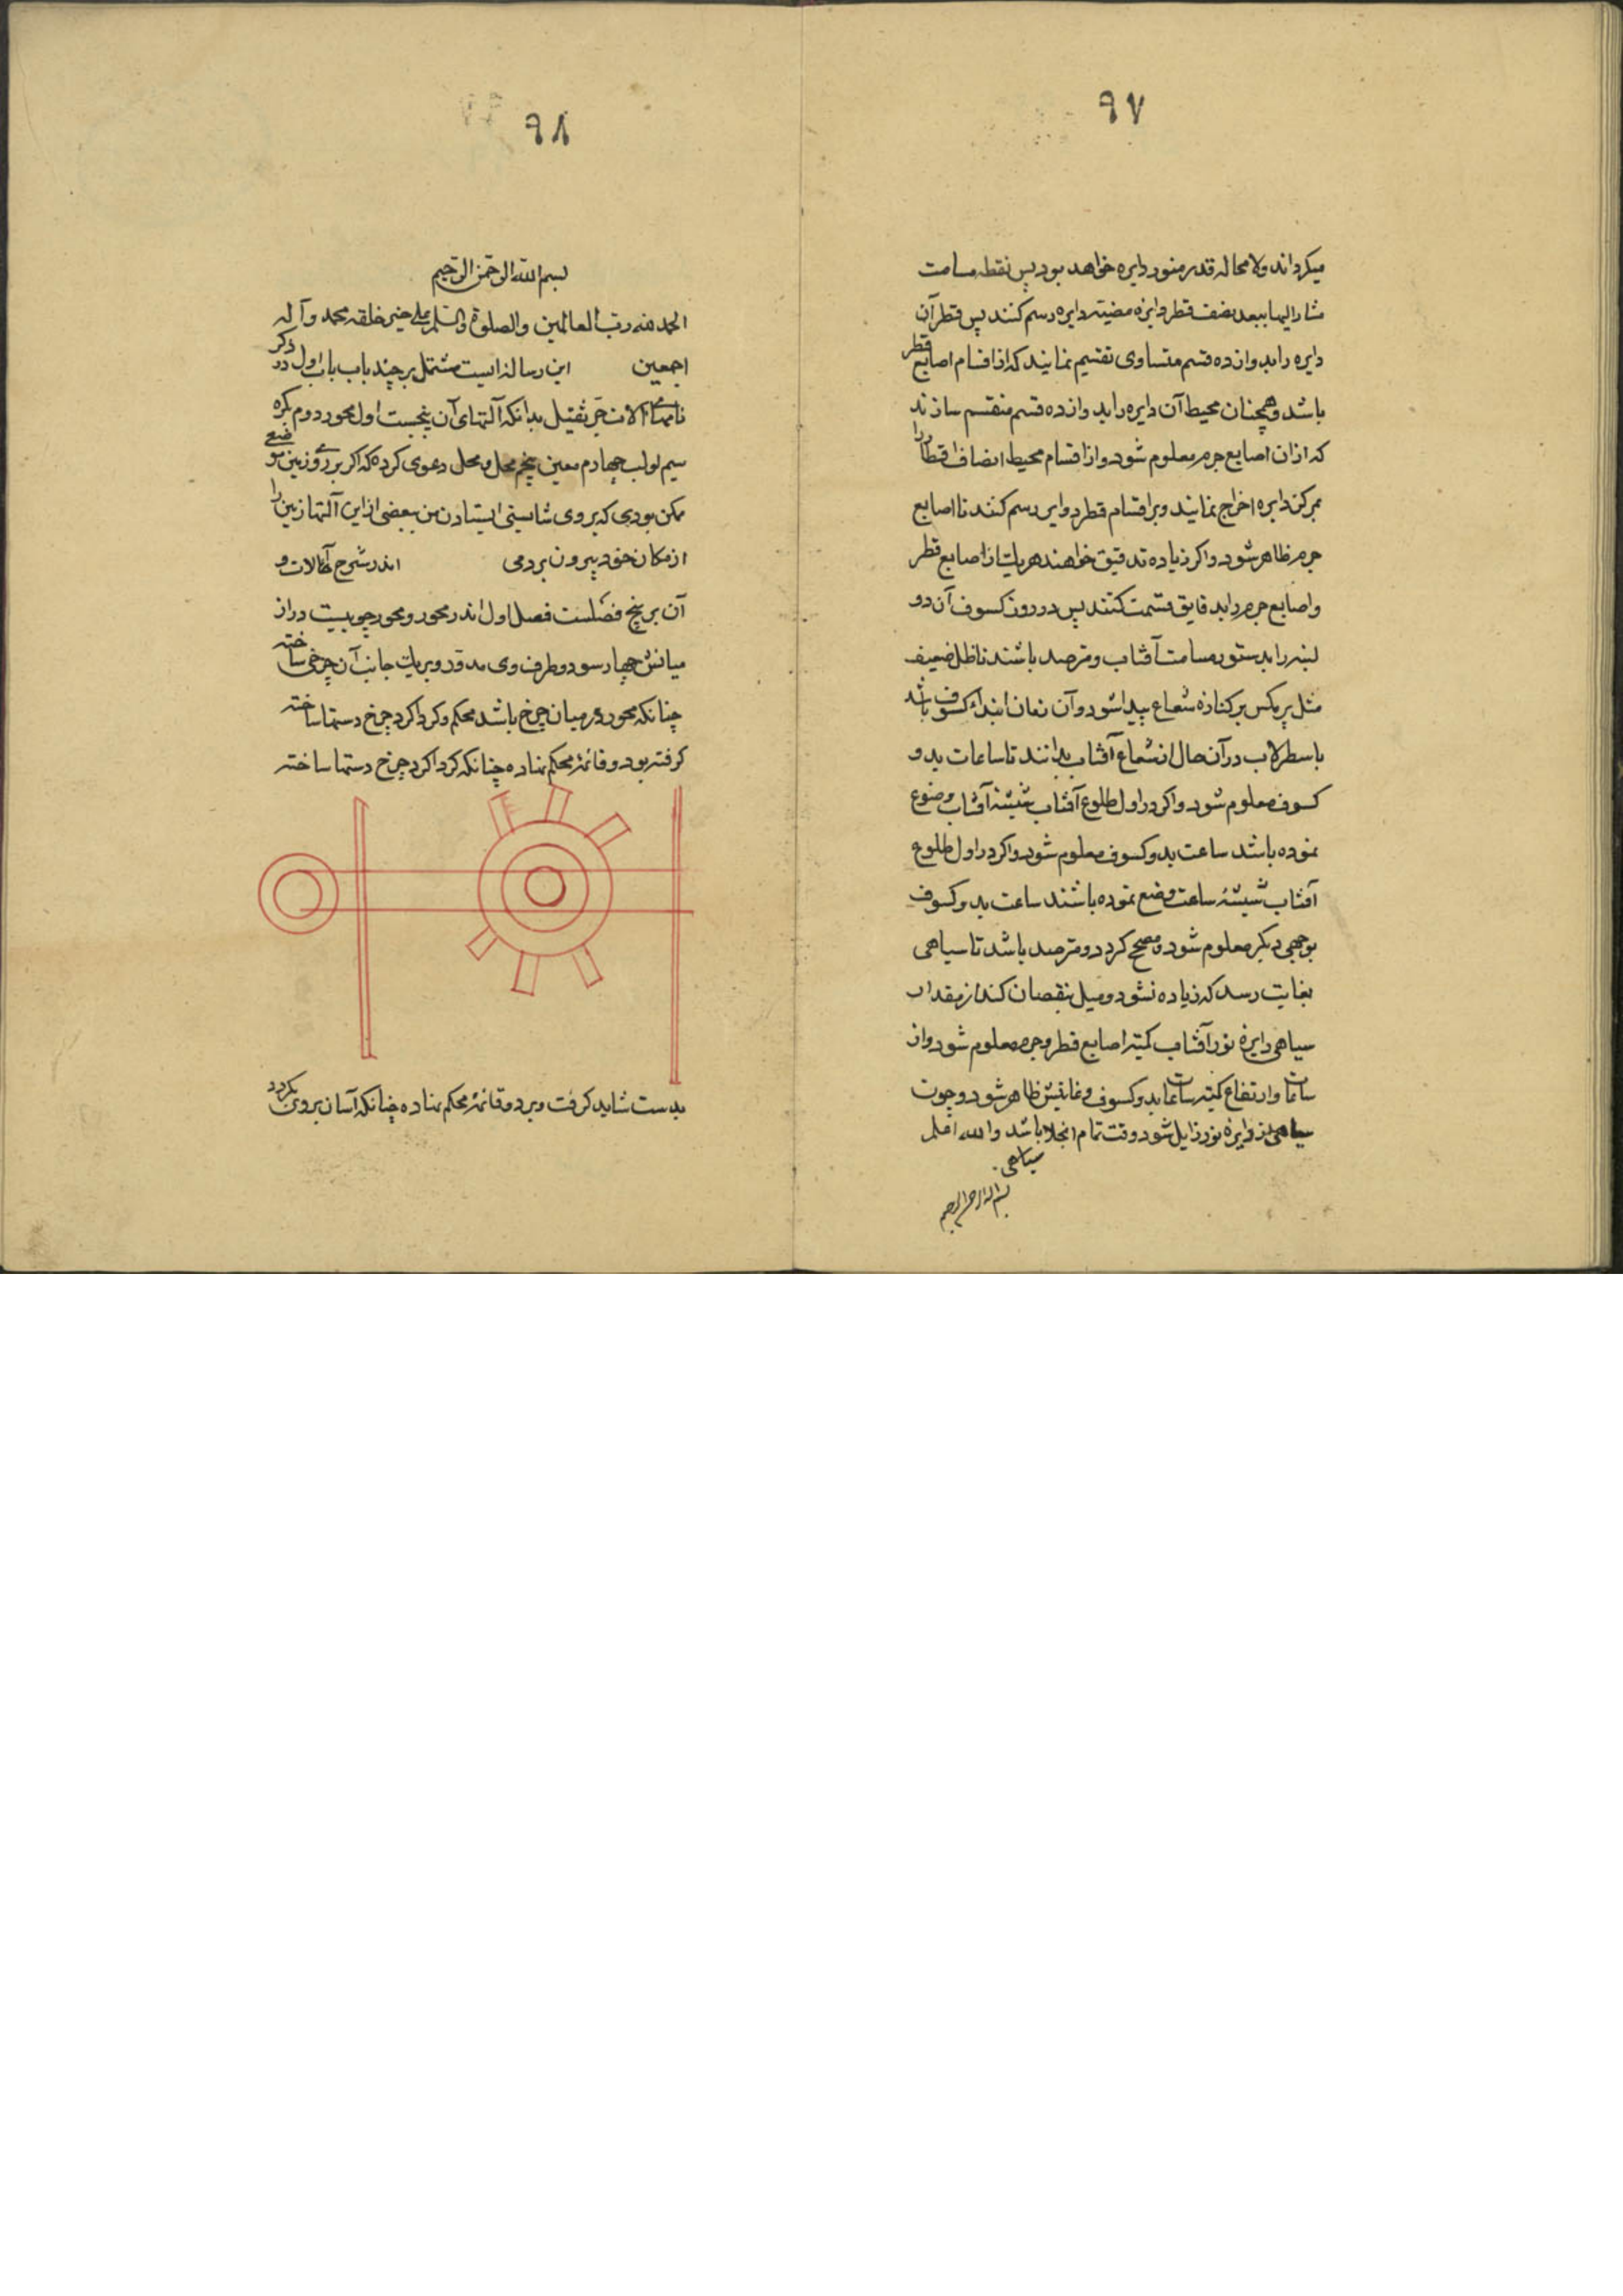 ٩٧
میکرداند ولا محاله قدر منور دایره خواهد بود پس نقطه مسامت
مشار الیها ببعد نصف قطر دایرهٔ مضیئه دایره رسم کنند پس قطر آن
دایره را بدوازده قسم متساوی تقسیم نمایند که از اقسام اصابع قطر
باشد و همچنان محیط آن دایره را بدوازده قسم منقسم سازند
که ازان اصابع جرم معلوم شود و از اقسام محیط انصاف اقطار را
بمرکز دایره اخراج نمایند و بر اقسام قطر دوایر رسم کنند تا اصابع
جرم ظاهر شود و اکر زیاده تدقیق خواهند هر یك از اصابع قطر
و اصابع جرم را بدقایق قسمت کنند پس در روز کسوف آن دو
لبنه را بدستور مسامت آفتاب و مترصد باشند تا ظل ضعیف
مثل پر مکس بر کنارهٔ شعاع پیدا شود و آن زمان ابتداء کسوف باشد
باسطرلاب در آن حال از شعاع آفتاب بدانند تا ساعات بدو
کسوف معلوم شود و اکر در اول طلوع آفتاب شیشهٔ آفتاب وضوع
نموده باشد ساعت بدو کسوف معلوم شود و اکر در اول طلوع
آفتاب شیشهٔ ساعت وضع نموده باشند ساعت بدو کسوف
بوجهی دیکر معلوم شود و مصحح کردد و مترصد باشد تا سیاهی
بغایت رسد که زیاده نشود و میل بنقصان کند از مقدار
سیاهی دایرهٔ نور آفتاب کمیته اصابع قطر و جرم معلوم شود و از
ساعات و ارتفاع کمیته ساعات بدو کسوف و غایتش ظاهر شود و چون
سیاهی از دایرهٔ نور زایل شود وقت تمام انجلا باشد والله اعلم
سیاهی
بسم الله الرحمن الرحیم
٩٨
بسم الله الرحمن الرحیم
الحمد لله رب العالمین والصلوة والسلم علی خیر خلقه محمد وآله
اجمعین این رساله ایست مشتمل بر چند باب باب اول در ذکر
نامهاء الات جر ثقیل بدانکه آلتهای آن پنجست اول محور دوم بکره
سیم لولب چهارم معین پنجم محل و محل دعوی کرده که اکر بر روی زمین موضعی
ممکن بودی که بروی شایستی ایستادن من ببعضی از این آلتها زمین را
از مکان خود بیرون بردمی اندر شرح آلات و
آن بر پنج فصلست فصل اول اندر محور و محور چوبیست دراز
میانش چهار سو و دو طرف وی مدور و بر یك جانب آن چرخی ساخته
چنانکه محور در میان چرخ باشد محکم و کرداکرد چرخ دستها ساخته
کرفته بود و قائمهٔ محکم نهاده چنانکه کرداکرد چرخ دستها ساخته
بدست شاید کرفت و بر دو قائمهٔ محکم نهاده چنانکه آسان بروی بکردد